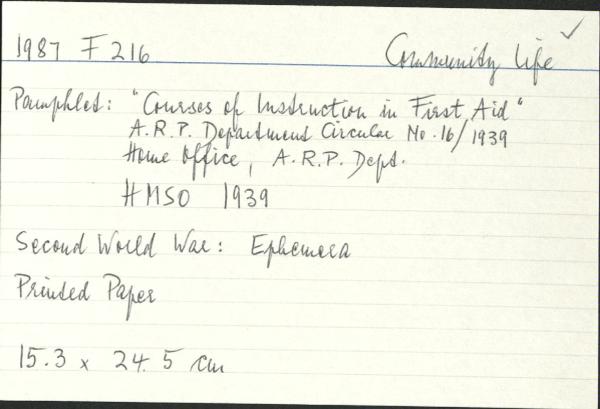 1987 F 216 Community Life
Pamphlet: "Courses of Instruction in First Aid"
A.R.P. Department Circular No. 16/1939
Home Office, A.R.P. Dept.
HMSO 1939
Second World War: Ephemera
Printed Paper
15.3 x 24.5 cm